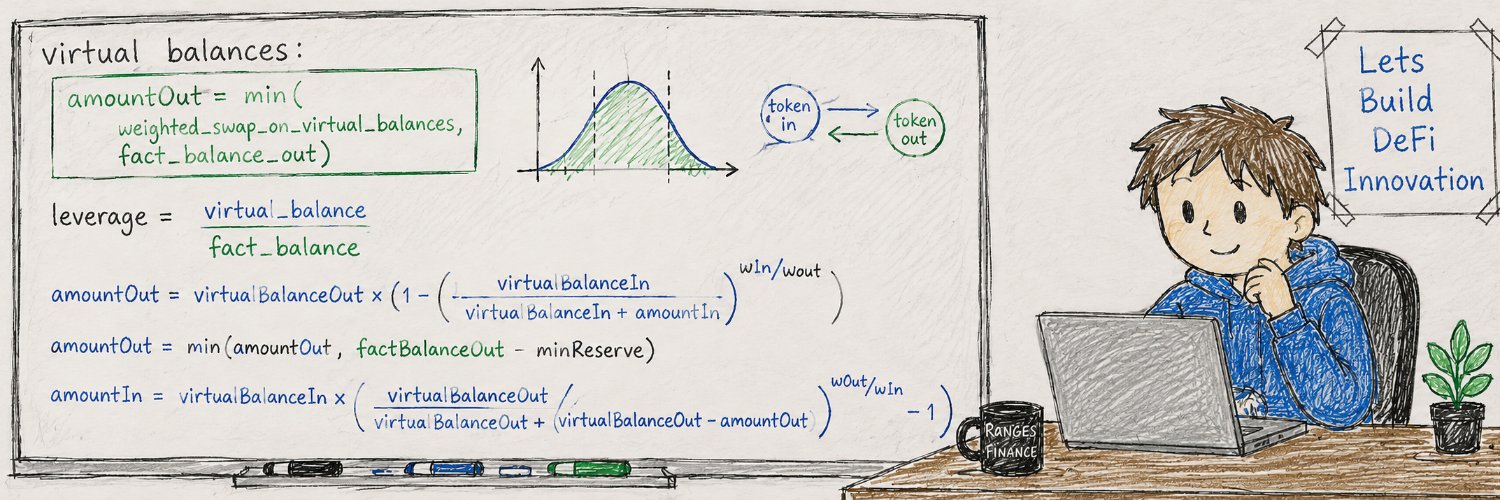 virtual balances:
amountOut = min(
weighted_swap_on_virtual_balances,
fact_balance_out)
token
in
token
out
leverage = virtual_balance
fact_balance
amountOut = virtualBalanceOut × (1 - (virtualBalanceIn
virtualBalanceIn + amountIn) wIn/wout )
amountOut = min(amountOut, factBalanceOut - minReserve)
amountIn = virtualBalanceIn × ( virtualBalanceOut /
virtualBalanceOut + (virtualBalanceOut - amountOut) ) wOut/wIn - 1 )
Lets
Build
DeFi
Innovation
RANGES
FINANCE